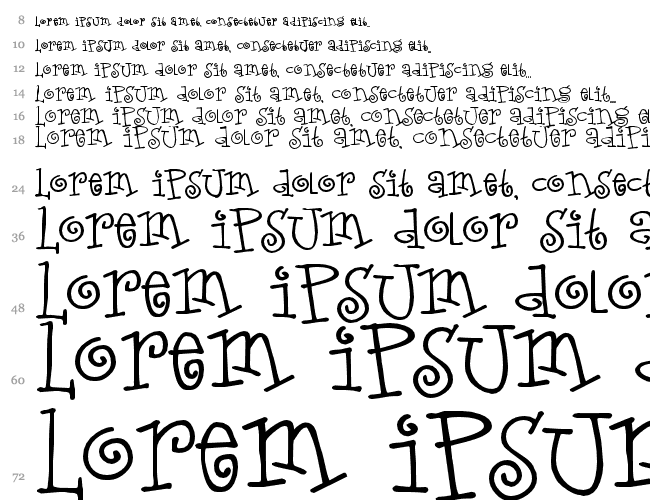 8 Lorem iPSUM dolor sit amet, consectetUer adiPiscing elit...
10 Lorem iPSUM dolor sit amet, consectetUer adiPiscing elit..
12 Lorem iPSUM dolor sit amet, consectetUer adiPiscing elit...
14 Lorem iPSUM dolor sit amet, consectetUer adiPiscing elit...
16 Lorem iPSUM dolor sit amet, consectetUer adiPiscing e
18 Lorem iPSUM dolor sit amet, consectetUer adiPi
24 Lorem iPSUM dolor sit amet, consect
36 Lorem iPSUM dolor sit a
48 Lorem iPSUM dolo
60 Lorem iPSUM
72 Lorem iPSU